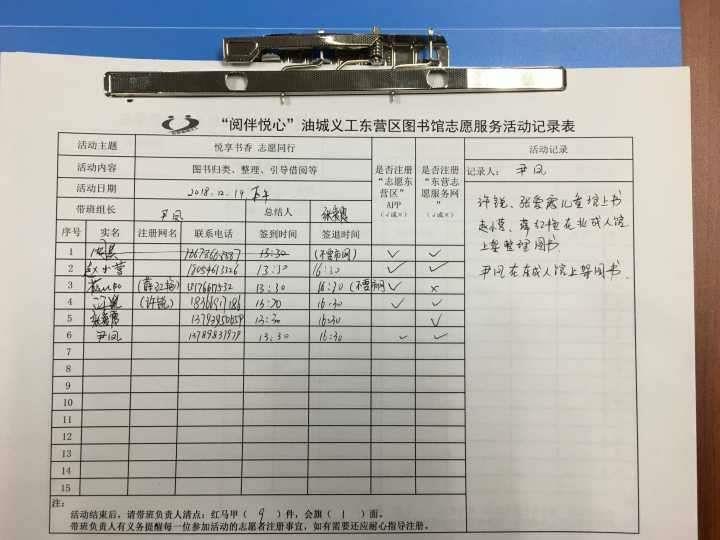 “阅伴悦心”油城义工东营区图书馆志愿服务活动记录表
活动主题 悦享书香 志愿同行 是否注册“志愿东营区”APP（√或×） 是否注册“东营志愿服务网”（√或×） 活动记录
活动内容 图书归类、整理、引导借阅等 记录人：尹凤
活动日期 2018.12.19 下午
带班组长 尹凤 总结人
序号 实名 注册网名 联系电话 签到时间 签退时间
1 13:30 √ √
2 赵小营 13:30 16:30 √ √
3 13:30 16:30 √ ×
4 (许锐) 16:30 √ √
5 13:30 16:30 √
6 尹凤 13789831979 13:30 16:30 √ √
7
8
9
10
11
12
13
14
15
许锐、张爱霞儿童馆上书
赵小营、薛红梅在北成人馆
上架整理图书
尹凤在东成人馆上架图书
注：
活动结束后，请带班负责人清点：红马甲（ 9 ）件，会旗（ 1 ）面。
带班负责人有义务提醒每一位参加活动的志愿者注册事宜，如有需要还应耐心指导注册。